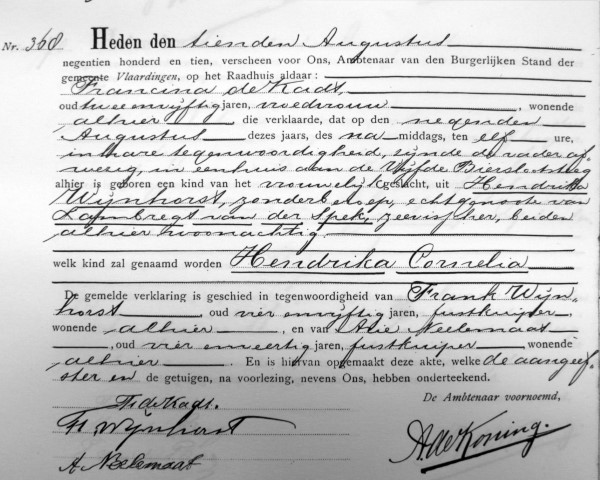 Nr. 368 Heden den tienden Augustus
negentien honderd en tien, verscheen voor Ons, Ambtenaar van den Burgerlijken Stand der
gemeente Vlaardingen, op het Raadhuis aldaar:
Francina de Kadt
oud twee en vijftig jaren, vroedvrouw, wonende
alhier die verklaarde, dat op den negenden
Augustus dezes jaars, des na middags, ten elf ure,
in hare tegenwoordigheid, zijnde de vader af-
wezig, in een huis aan de Vijfde Biersloot steeg
alhier is geboren een kind van het vrouwelijk geslacht, uit Hendrika
Wijnhorst, zonder beroep, echtgenoote van
Lambregt van der Spek, zeevisscher, beiden
alhier woonachtig
welk kind zal genaamd worden Hendrika Cornelia
De gemelde verklaring is geschied in tegenwoordigheid van Frank Wijn-
horst, oud vier en vijftig jaren, fustkuiper,
wonende alhier, en van Arie Neelemaat
, oud vier en veertig jaren, fustkuiper wonende
alhier. En is hiervan opgemaakt deze akte, welke de aangeef-
ster en de getuigen, na voorlezing, nevens Ons, hebben onderteekend.
De Ambtenaar voornoemd,
F. de Kadt.
F. Wijnhorst
A. de Koning.
A Neelemaat